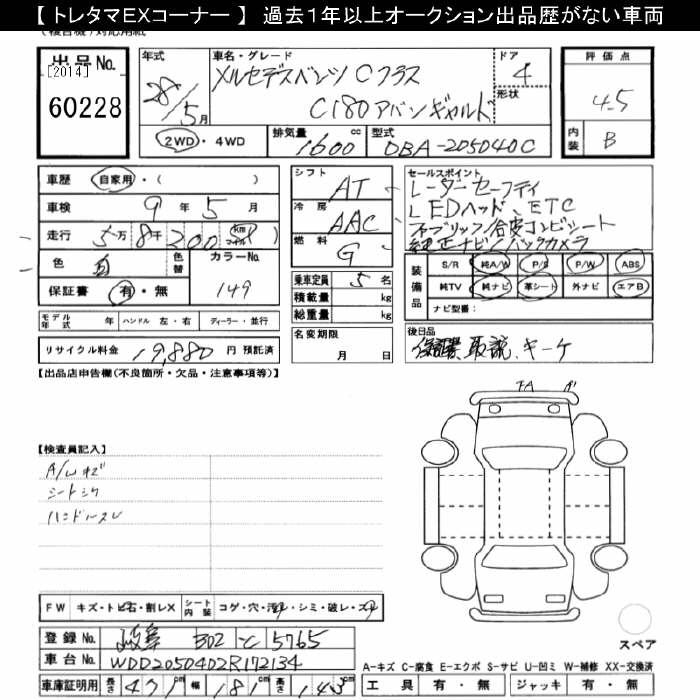 【 トレタマEXコーナー 】 過去1年以上オークション出品歴がない車両
出品No. [2014] 60228
年式 28/5月
車名・グレード メルセデスベンツ Cクラス
C180アバンギャルド
ドア 4
形状
評価点 4.5
内装 B
2WD ・ 4WD
排気量 1600 cc
型式 DBA-205040C
車歴 自家用 ・ ( )
車検 9年 5月
走行 5万 8千 200 km マイル
色 白 色替 カラーNo. 149
保証書 有 ・ 無
シフト AT
冷房 AAC
燃料 G
乗車定員 5名
積載量 kg
総重量 kg
セールスポイント
レーダーセーフティ
LEDヘッド、ETC
純正ナビ/バックカメラ
装備品 S/R 純A/W P/S P/W ABS
純TV 純ナビ 革シート 外ナビ エアB
ナビ型番:
モデル年式 年 ハンドル 左・右 ディーラー・並行
リサイクル料金 19,880 円 預託済
名変期限 月 日
後日品
保証書、取説、キーケ
【出品店申告欄(不良箇所・欠品・注意事項等)】
【検査員記入】
A/Wキズ
シートシワ
ハンドルスレ
FW キズ・トビ石・割レX シート内装 コゲ・穴・汚レ・シミ・破レ・スレ
登録No. 岐阜 302 と 5765
車台No. WDD2050402R172134
車庫証明用 長さ 471cm 幅 181cm 高さ 143cm
スペア
A-キズ C-腐食 E-エクボ S-サビ U-凹ミ W-補修 XX-交換済
工具 有 ・ 無 ジャッキ 有 ・ 無